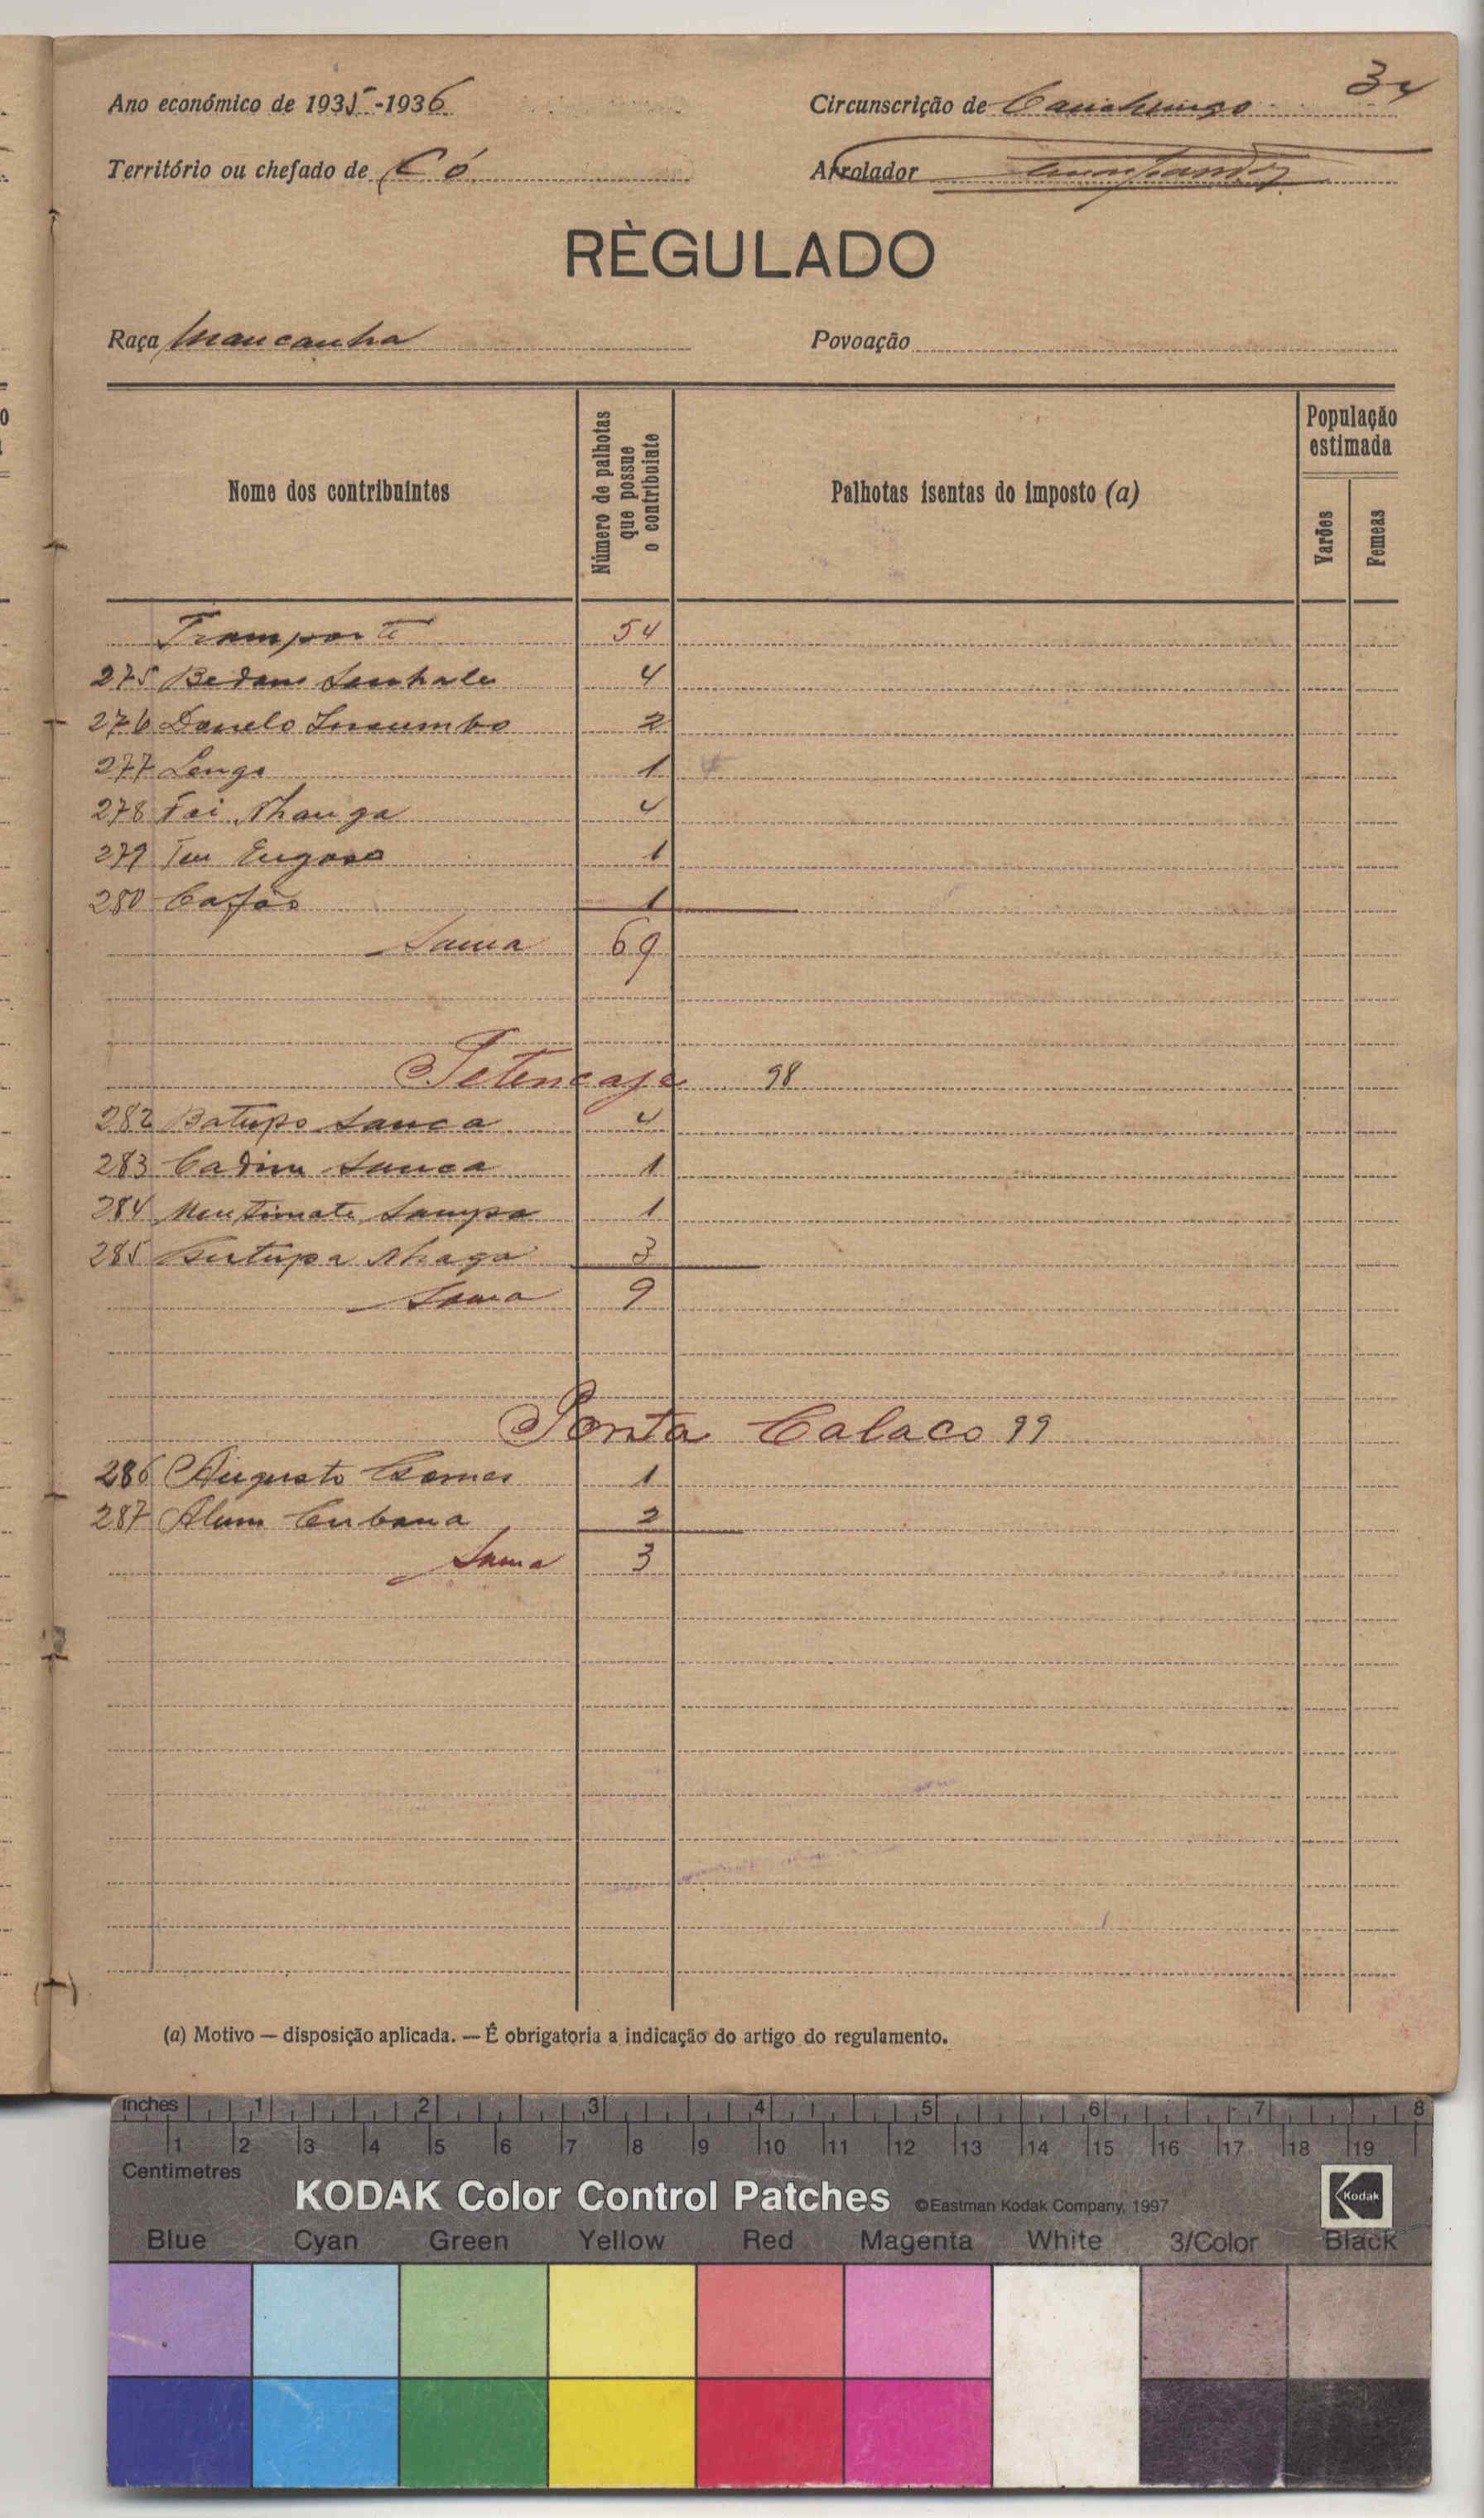 34
Ano económico de 1935-1936
Circunscrição de Canchungo
Território ou chefado de Có
Arrolador
RÈGULADO
Raça Mancanha
Povoação
Nome dos contribuintes
Número de palhotas que possue o contribuiate
Palhotas isentas do imposto (a)
População estimada
Varões
Femeas
Transporte 54
275 4
276 Danelo 2
277 Lenga 1
278 Fai Nhanga 4
279 1
280 Cafós 1
Soma 69
Petencaje 98
282 Batupo Sanca 4
283 Cadim Sanca 1
284 Sampa 1
285 Nhaga 3
Soma 9
Ponta Calaco 99
286 Augusto Gomes 1
287 Alum Cubana 2
Soma 3
(a) Motivo — disposição aplicada. — É obrigatoria a indicação do artigo do regulamento.
Inches 1 2 3 4 5 6 7 8
1 2 3 4 5 6 7 8 9 10 11 12 13 14 15 16 17 18 19
Centimetres
KODAK Color Control Patches ©Eastman Kodak Company, 1997 Kodak
Blue Cyan Green Yellow Red Magenta White 3/Color Black